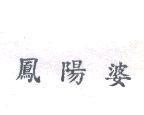 鳳陽婆